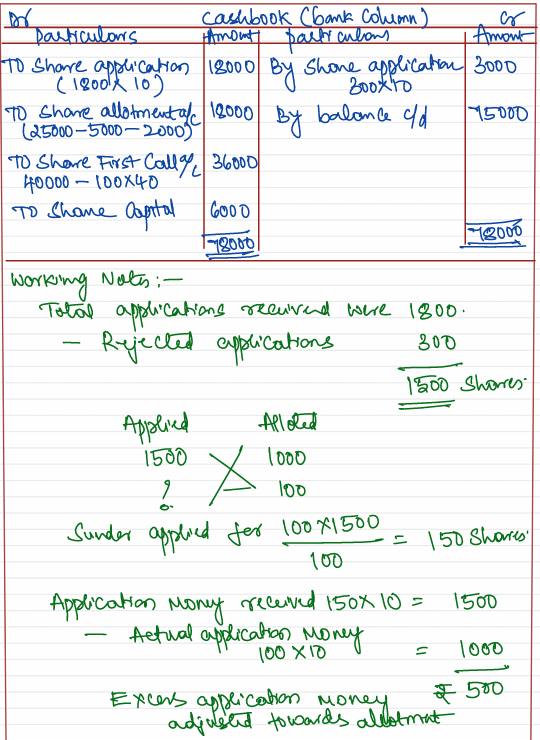 Dr Cashbook (bank Column) Cr
Particulars Amount particulars Amount
TO Share application 18000 By Share application 3000
(1800 X 10) 300X10
TO Share allotment a/c 18000 By balance c/d 75000
(25000-5000-2000)
TO Share First Call a/c 36000
40000-100X40
TO Share Capital 6000
78000 78000
Working Notes:-
Total applications received were 1800.
- Rejected applications 300
1500 Shares.
Applied Alloted
1500 1000
? 100
Sunder applied for 100X1500/100 = 150 Shares.
Application Money received 150X10 = 1500
- Actual application Money
100X10 = 1000
Excess application money ₹ 500
adjusted towards allotment